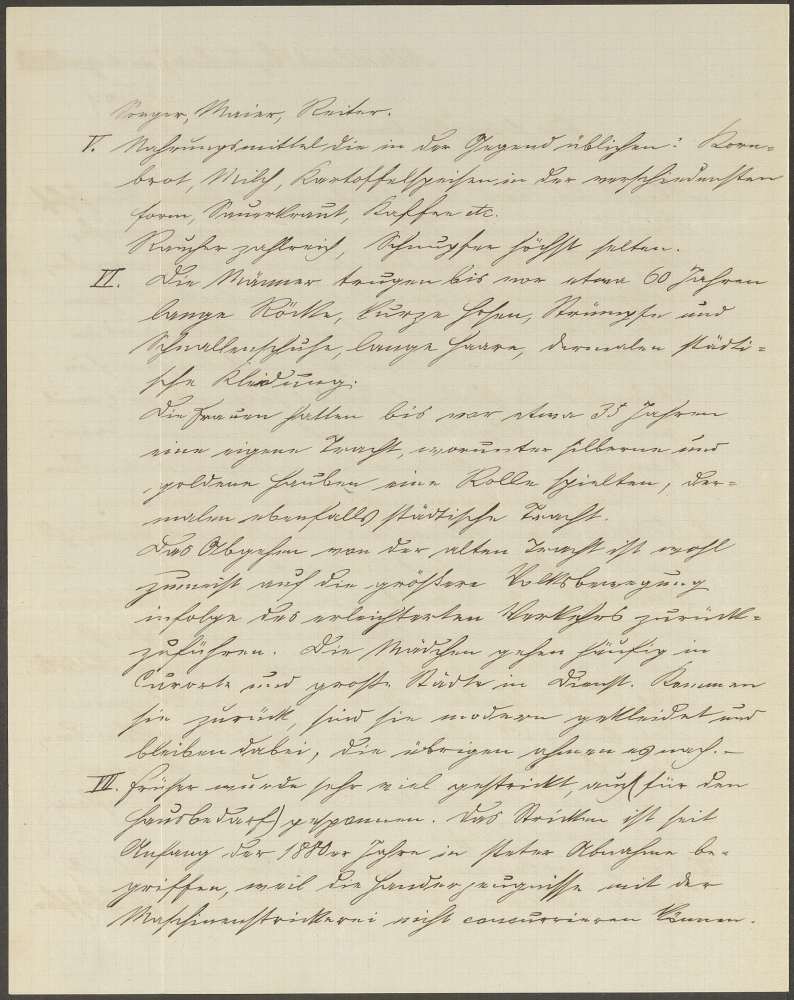 Sorger, Maier, Reiter.
V. Nahrungsmittel die in der Gegend üblichen: Korn-
brot, Milch, Kartoffelspeisen in der verschiedensten
Form, Sauerkraut, Kaffee etc.
Raucher zahlreich, Schnupfer höchst selten.
VI. Die Männer trugen bis vor etwa 60 Jahren
lange Röcke, kurze Hosen, Strümpfe und
Schnallenschuhe, lange Haare, dermalen städti-
sche Kleidung.
Die Frauen hatten bis vor etwa 35 Jahren
eine eigene Tracht, worunter silberne und
goldene Hauben eine Rolle spielten, der-
malen ebenfalls städtische Tracht.
Das Abgehen von der alten Tracht ist wohl
zumeist auf die größere Volksbewegung
infolge des erleichterten Verkehrs zurück-
zuführen. Die Mädchen gehen häufig in
Curorte und große Städte in Dienst. Kommen
sie zurück, sind sie modern gekleidet und
bleiben dabei, die übrigen ahmen es nach. –
VII. Früher wurde sehr viel gestrickt auch (für den
Hausbedarf) gesponnen. Das Stricken ist seit
Anfang der 1880er Jahre in steter Abnahme be-
griffen, weil die Handerzeugnisse mit der
Maschinenstrickerei nicht concurrieren können.